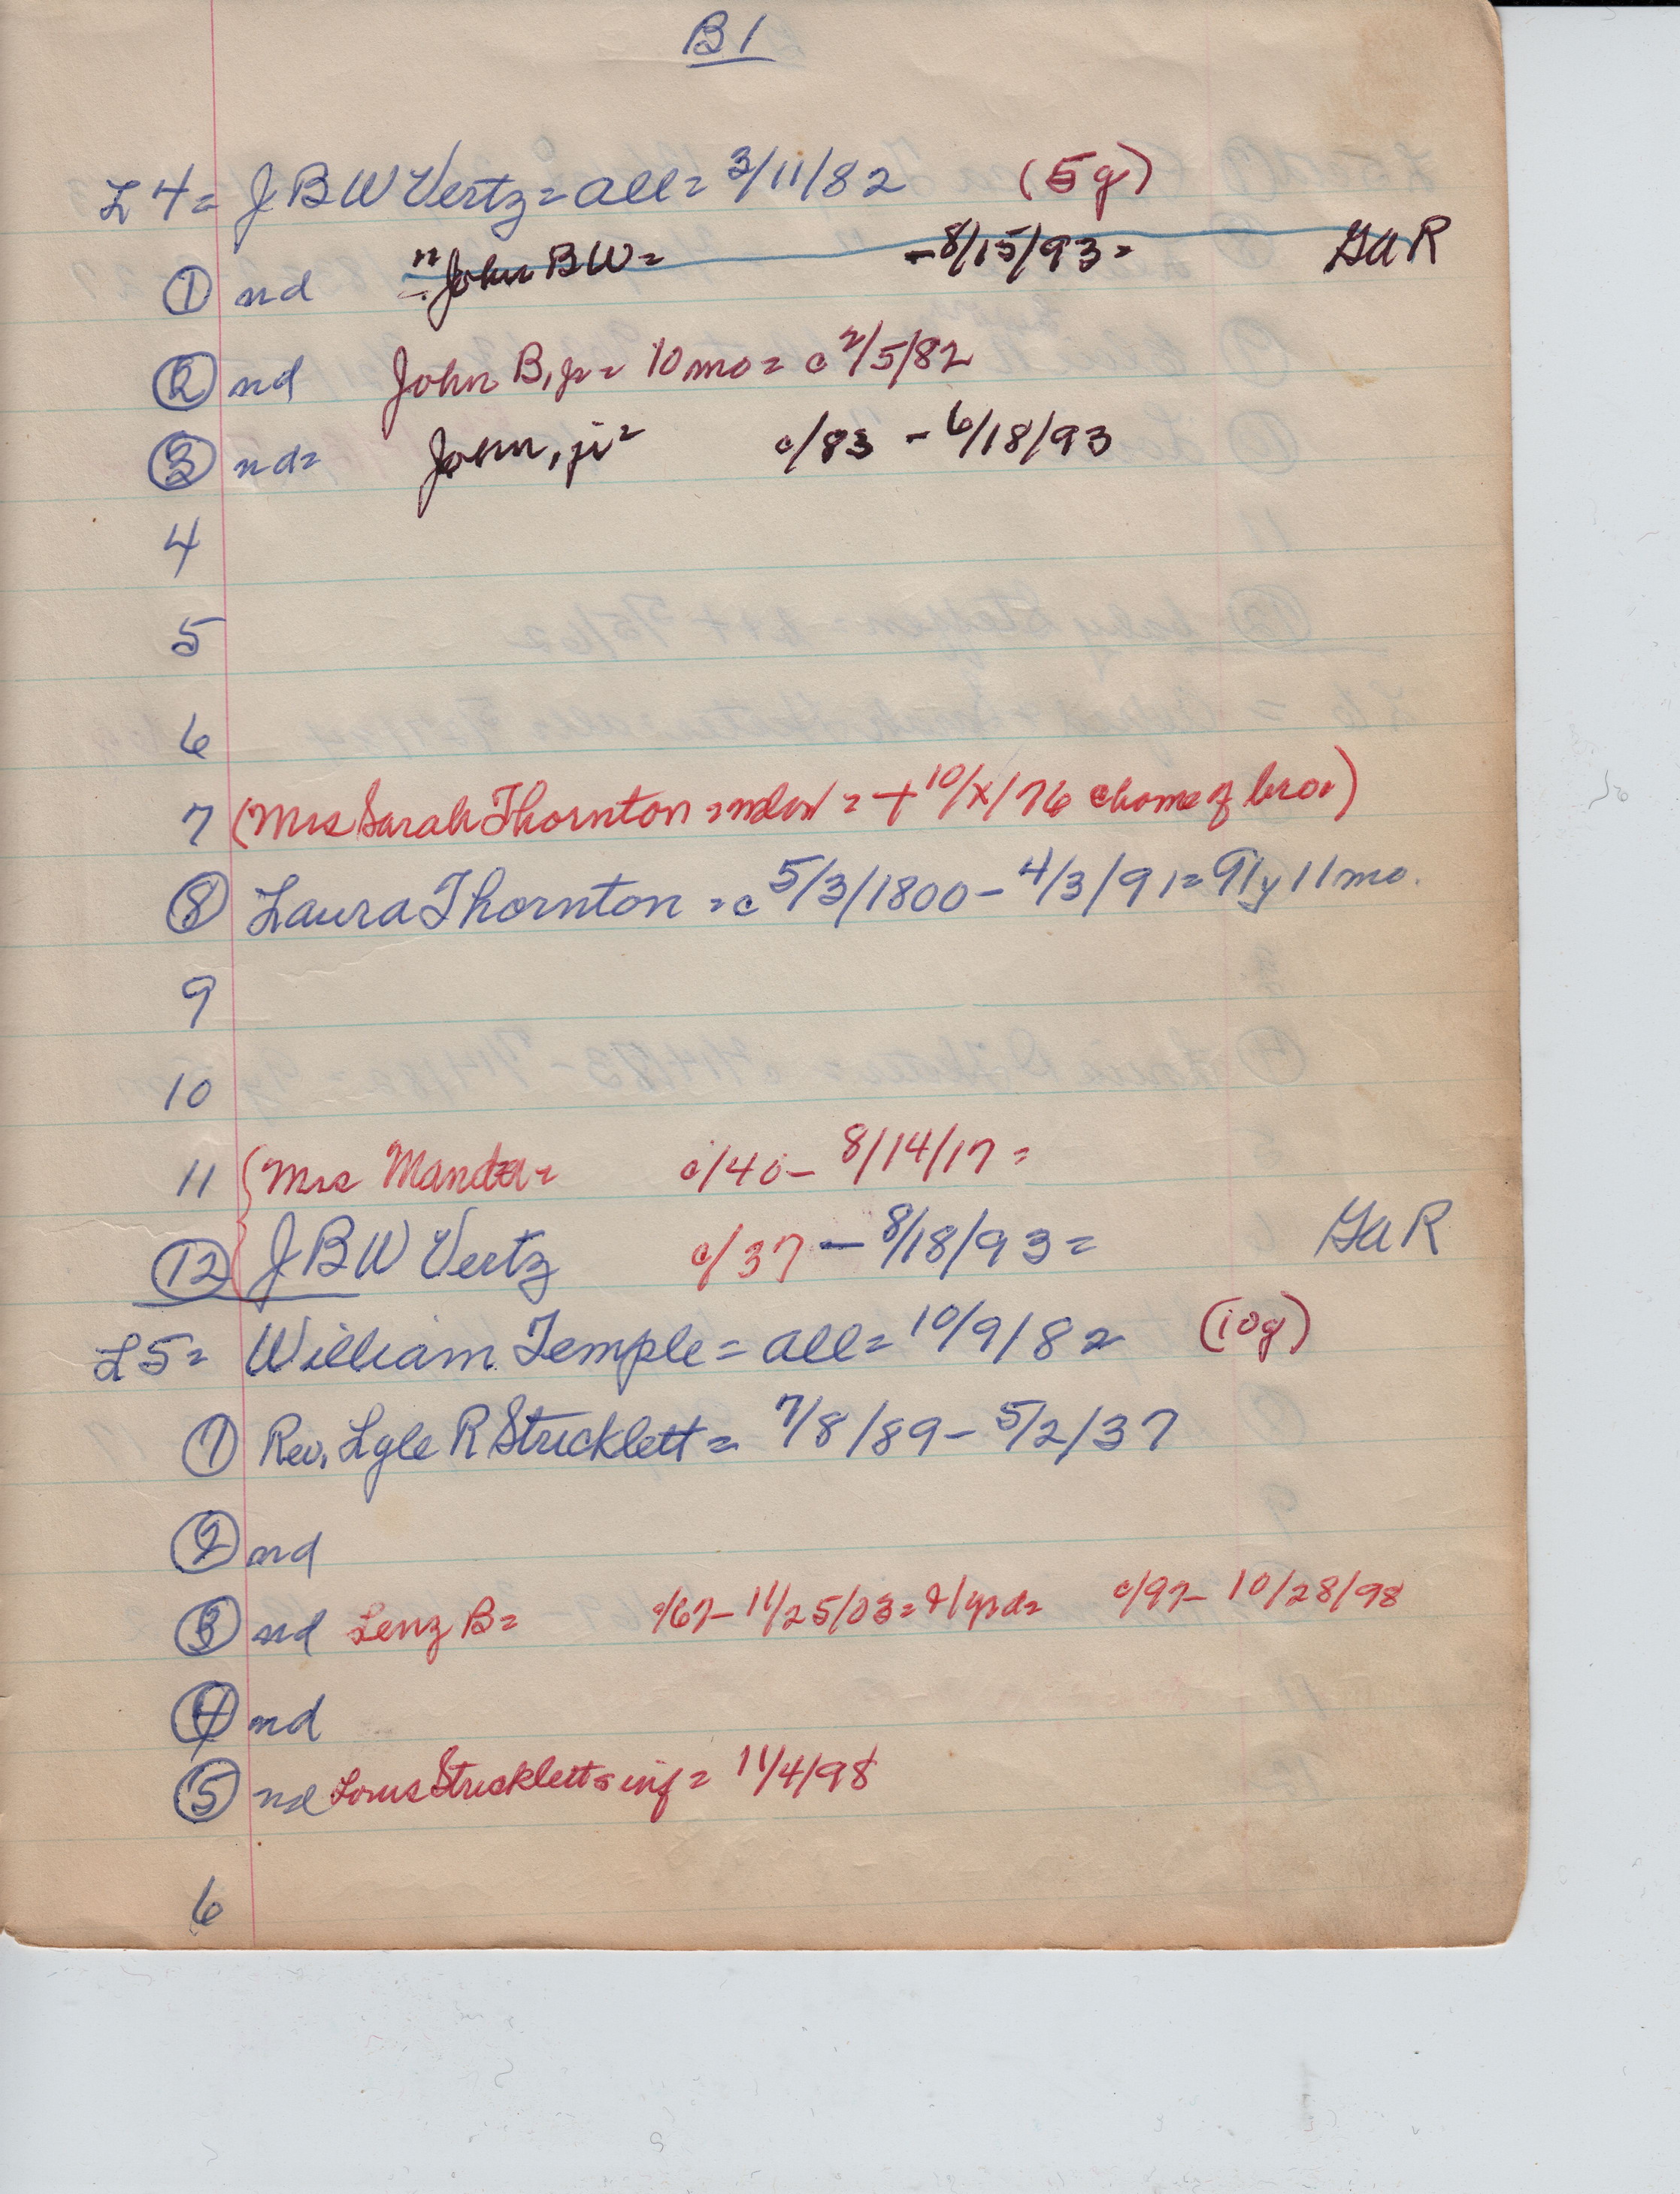 B1
L4 = J B W Vertz = all = 3/11/82 (5g)
1 nd " John B W = - 8/15/93 = GaR
2 nd John B, jr = 10 mo = c 2/5/82
3 nd = John, jr = c/83 - 6/18/93
4
5
6
7 (Mrs Sarah Thornton = = + 10/x/76 home of bro)
8 Laura Thornton = c 5/3/1800 - 4/3/91 = 91y 11mo.
9
10
11 Mrs Manda = c/40 - 8/14/17 =
12 J B W Vertz c/37 - 8/18/93 = GaR
L5 = William Temple = all = 10/9/82 (10g)
1 Rev. Lyle R Stricklett = 7/8/89 - 5/2/37
2 nd
3 nd Lenz B = c/67 - 11/25/03 = c/97 - 10/28/98
4 nd
5 nd Stricklett = inf = 11/4/98
6